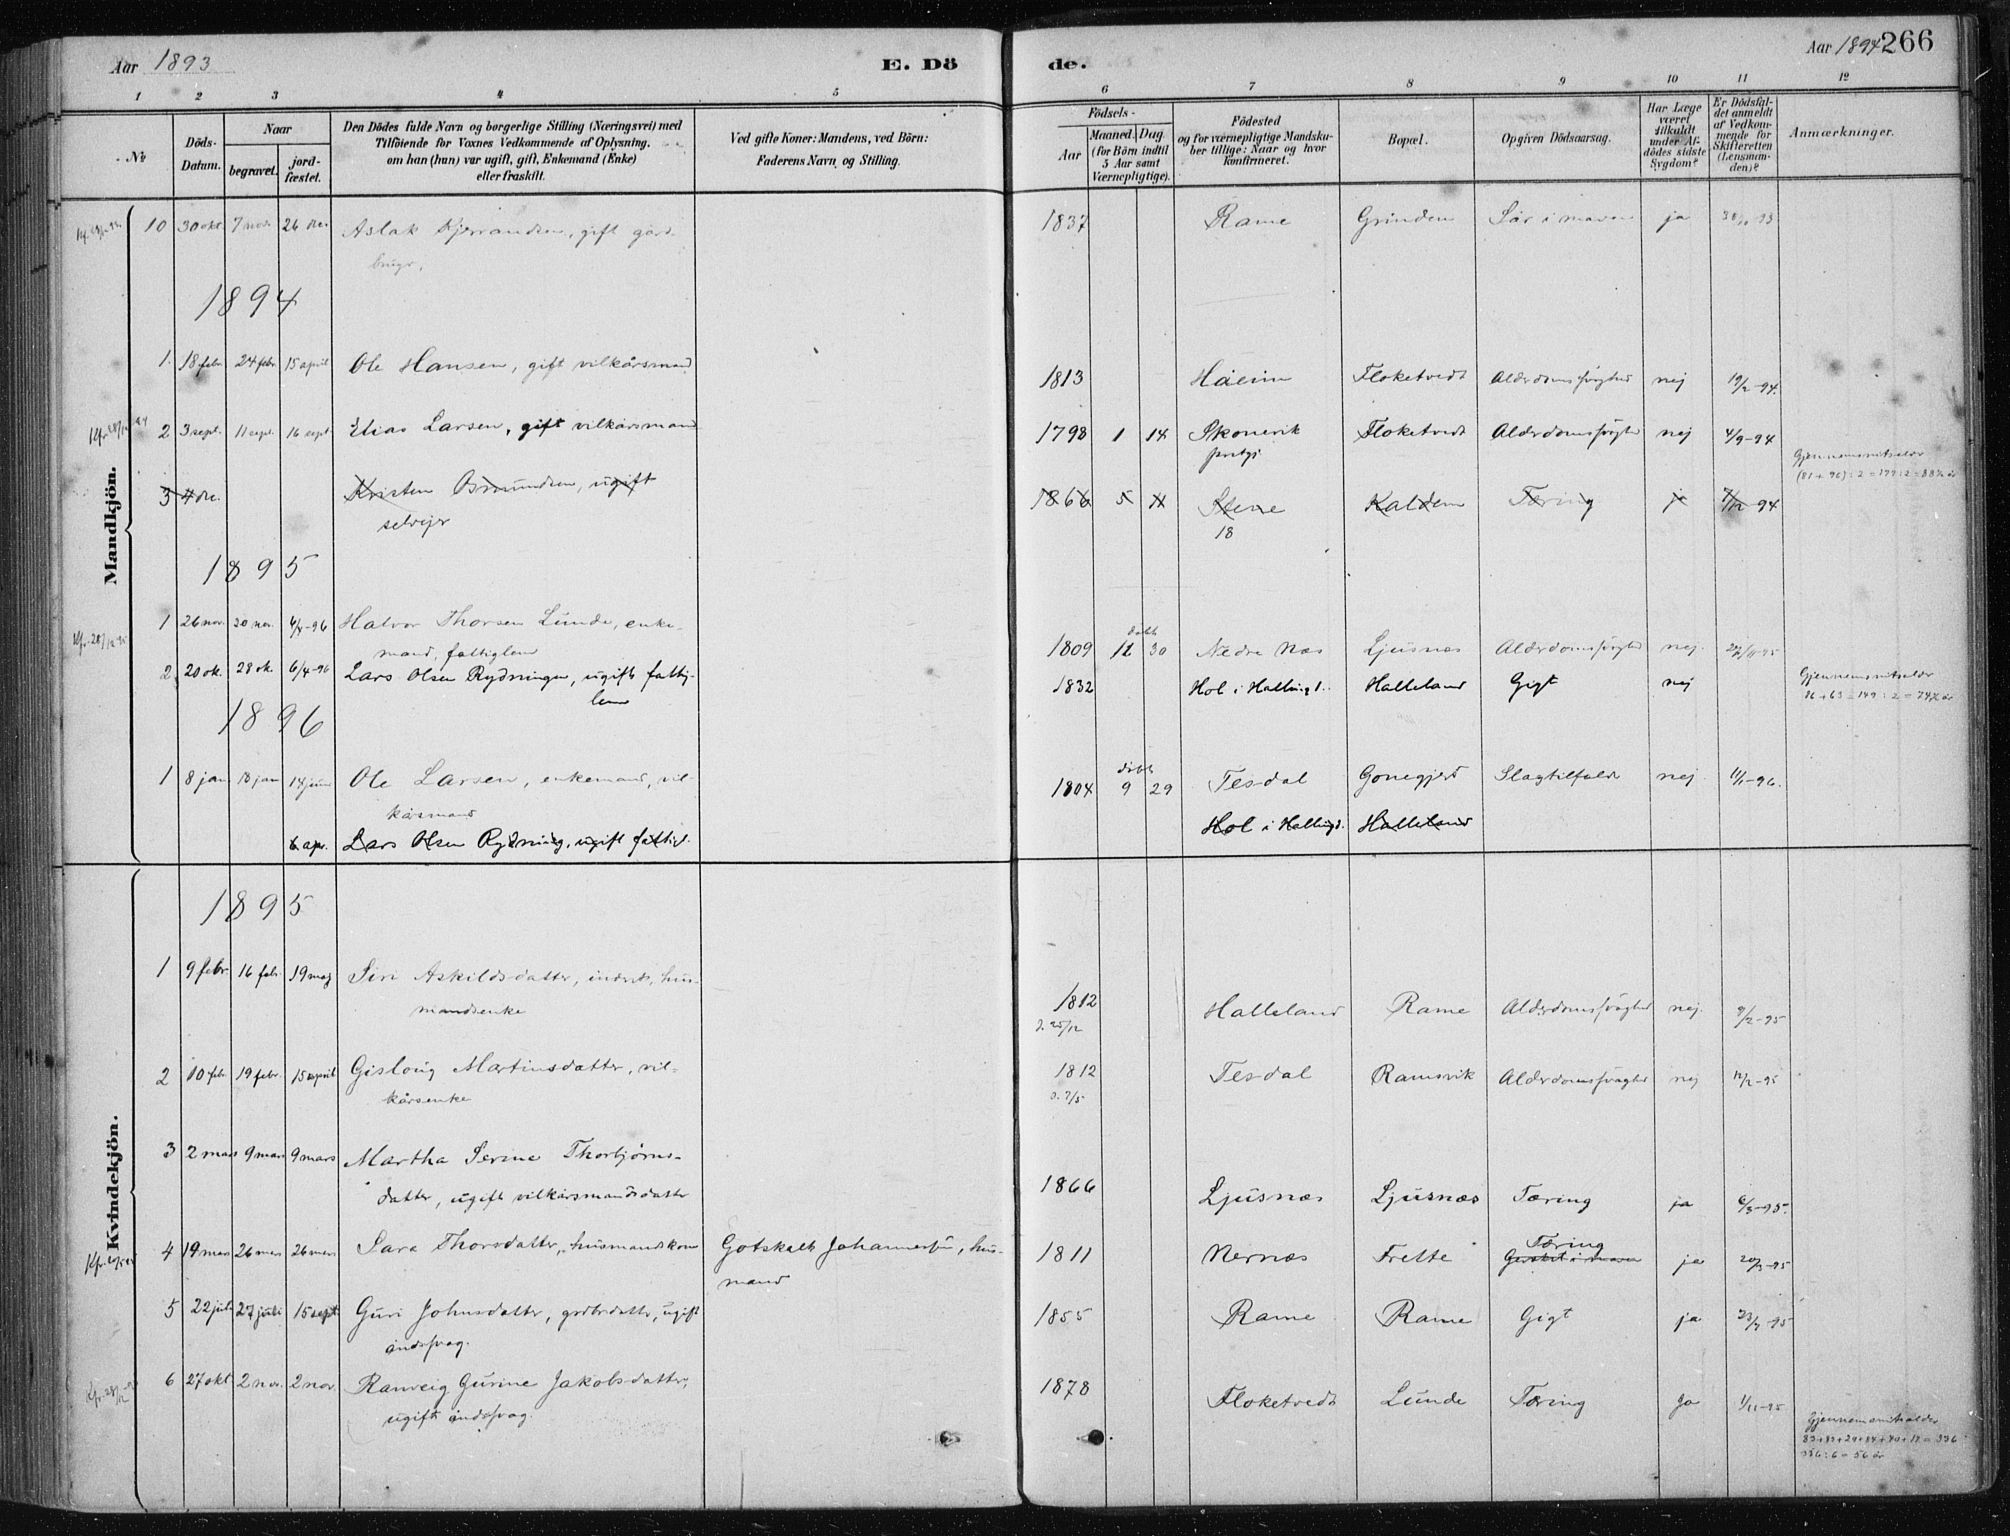 Aar 1893
E. Dö
de.
Aar 1894 266
1 2 3 4 5 6 7 8 9 10 11 12
No
Döds-
Datum.
Naar
begravet.
jord-
fæstet.
Den Dödes fulde Navn og borgerlige Stilling (Næringsvei) med
Tilföiende for Voxnes Vedkommende af Oplysning.
om han (hun) var ugift, gift, Enkemand (Enke)
eller fraskilt.
Ved gifte Koner: Mandens, ved Börn:
Faderens Navn og Stilling.
Födsels-
Aar
Maaned. Dag.
(for Börn indtil
5 Aar samt
Værnepligtige).
Födested
og for værnepligtige Mandsku-
ber tillige: Naar og hvor
konfirmeret.
Bopæl.
Opgiven Dödsaarsag.
Har Læge
været
tilkaldt
under Af-
dödes sidste
Sygdom?
Er Dödsfal-
det anmeldt
af Vedkom-
mende for
Skifteretten
(Lensman-
den)?
Anmærkninger.
Mandkjön.
10 30 okt. 7 nov. 26 dec Aslak Gjerrandsen, gift gård- 1837 Rame Grinden Sår i maven ja
brugr.
1894
1. 18 febr. 24 febr. 15 april Ole Hansen, gift vilkårsmand 1813 Håeim Floketvedt Alderdomssvaghed nej 19/2-94.
2 3 sept. 11 sept. 16 sept. Elias Larsen, gift vilkårsmand 1798 1 14 Skonevik Floketvedt Alderdomssvaghed nej 4/9-94
prstgj.
Gjennemsnitsalder
(81 + 96) : 2 = 177 : 2 = 88½ år
3 4 de. Kristen Osmundsen, ugift 1866 5 Stene Kaldem Tæring ja 7/12-94
selvejer 18
1895
1 26 nov. 30 nov. 6/4-96 Halvor Thorsen Lunde, enke- 1809 døbt 12 30 Nedre Næs Ljusnes Alderdomssvaghed nej. 27/11-95
mand, fattiglem
2 20 ok. 28 ok. 6/4-96 Lars Olsen Rydningen, ugift fattig- 1832 Hol i Hallingd. Halleland Gigt nej
lem
Gjennemsnitsalder
86 + 63 = 149 : 2 = 74½ år
1896
1 8 jan 18 jan 14 juni Ole Larsen, enkemand, vil- 1804 døbt 9 29 Tesdal Gonegjerd Slagtilfælde nej 11/1-96.
kårsmand
6 apr. Lars Olsen Rydning, ugift fattigl. Hol i Hallingd. Halleland
Kvindekjön.
1895
1 9 febr. 16 febr. 19 maj Siri Askildsdatter, inderst, hus- 1812 Halleland Rame Alderdomssvaghed nej. 9/2-95
mandsenke d. 25/12
2 10 febr. 19 febr. 15 april Gisloug Martinsdatter, vil- 1812 Tesdal Ramsvik Alderdomssvaghed nej 12/2-95
kårsenke d. 7/5
3 2 mars 9 mars 9 mars Martha Serine Thorbjørns- 1866 Ljusnæs Ljusnæs Tæring ja 6/3-95.
datter, ugift vilkårsmandsdatter
4 19 mars 26 mars 26 mars Sara Thorsdatter, husmandskone Gotskalk Johannessøn, hus- 1811 Nernæs Frette Tæring ja 20/3-95
mand
5 22 juli 27 juli 15 sept. Guri Johnsdatter, grdbrdatter, ugift 1855 Rame Rame Gigt ja 23/7-95
åndssvag.
6 27 okt 2 nov. 2 nov. Ranveig Gurine Jakobsdatter, 1878 Floketvedt Lunde Tæring Ja 1/11-95
ugift åndssvag.
Gjennemsnitsalder
83+83+29+84+40+17 = 336
336 : 6 = 56 år